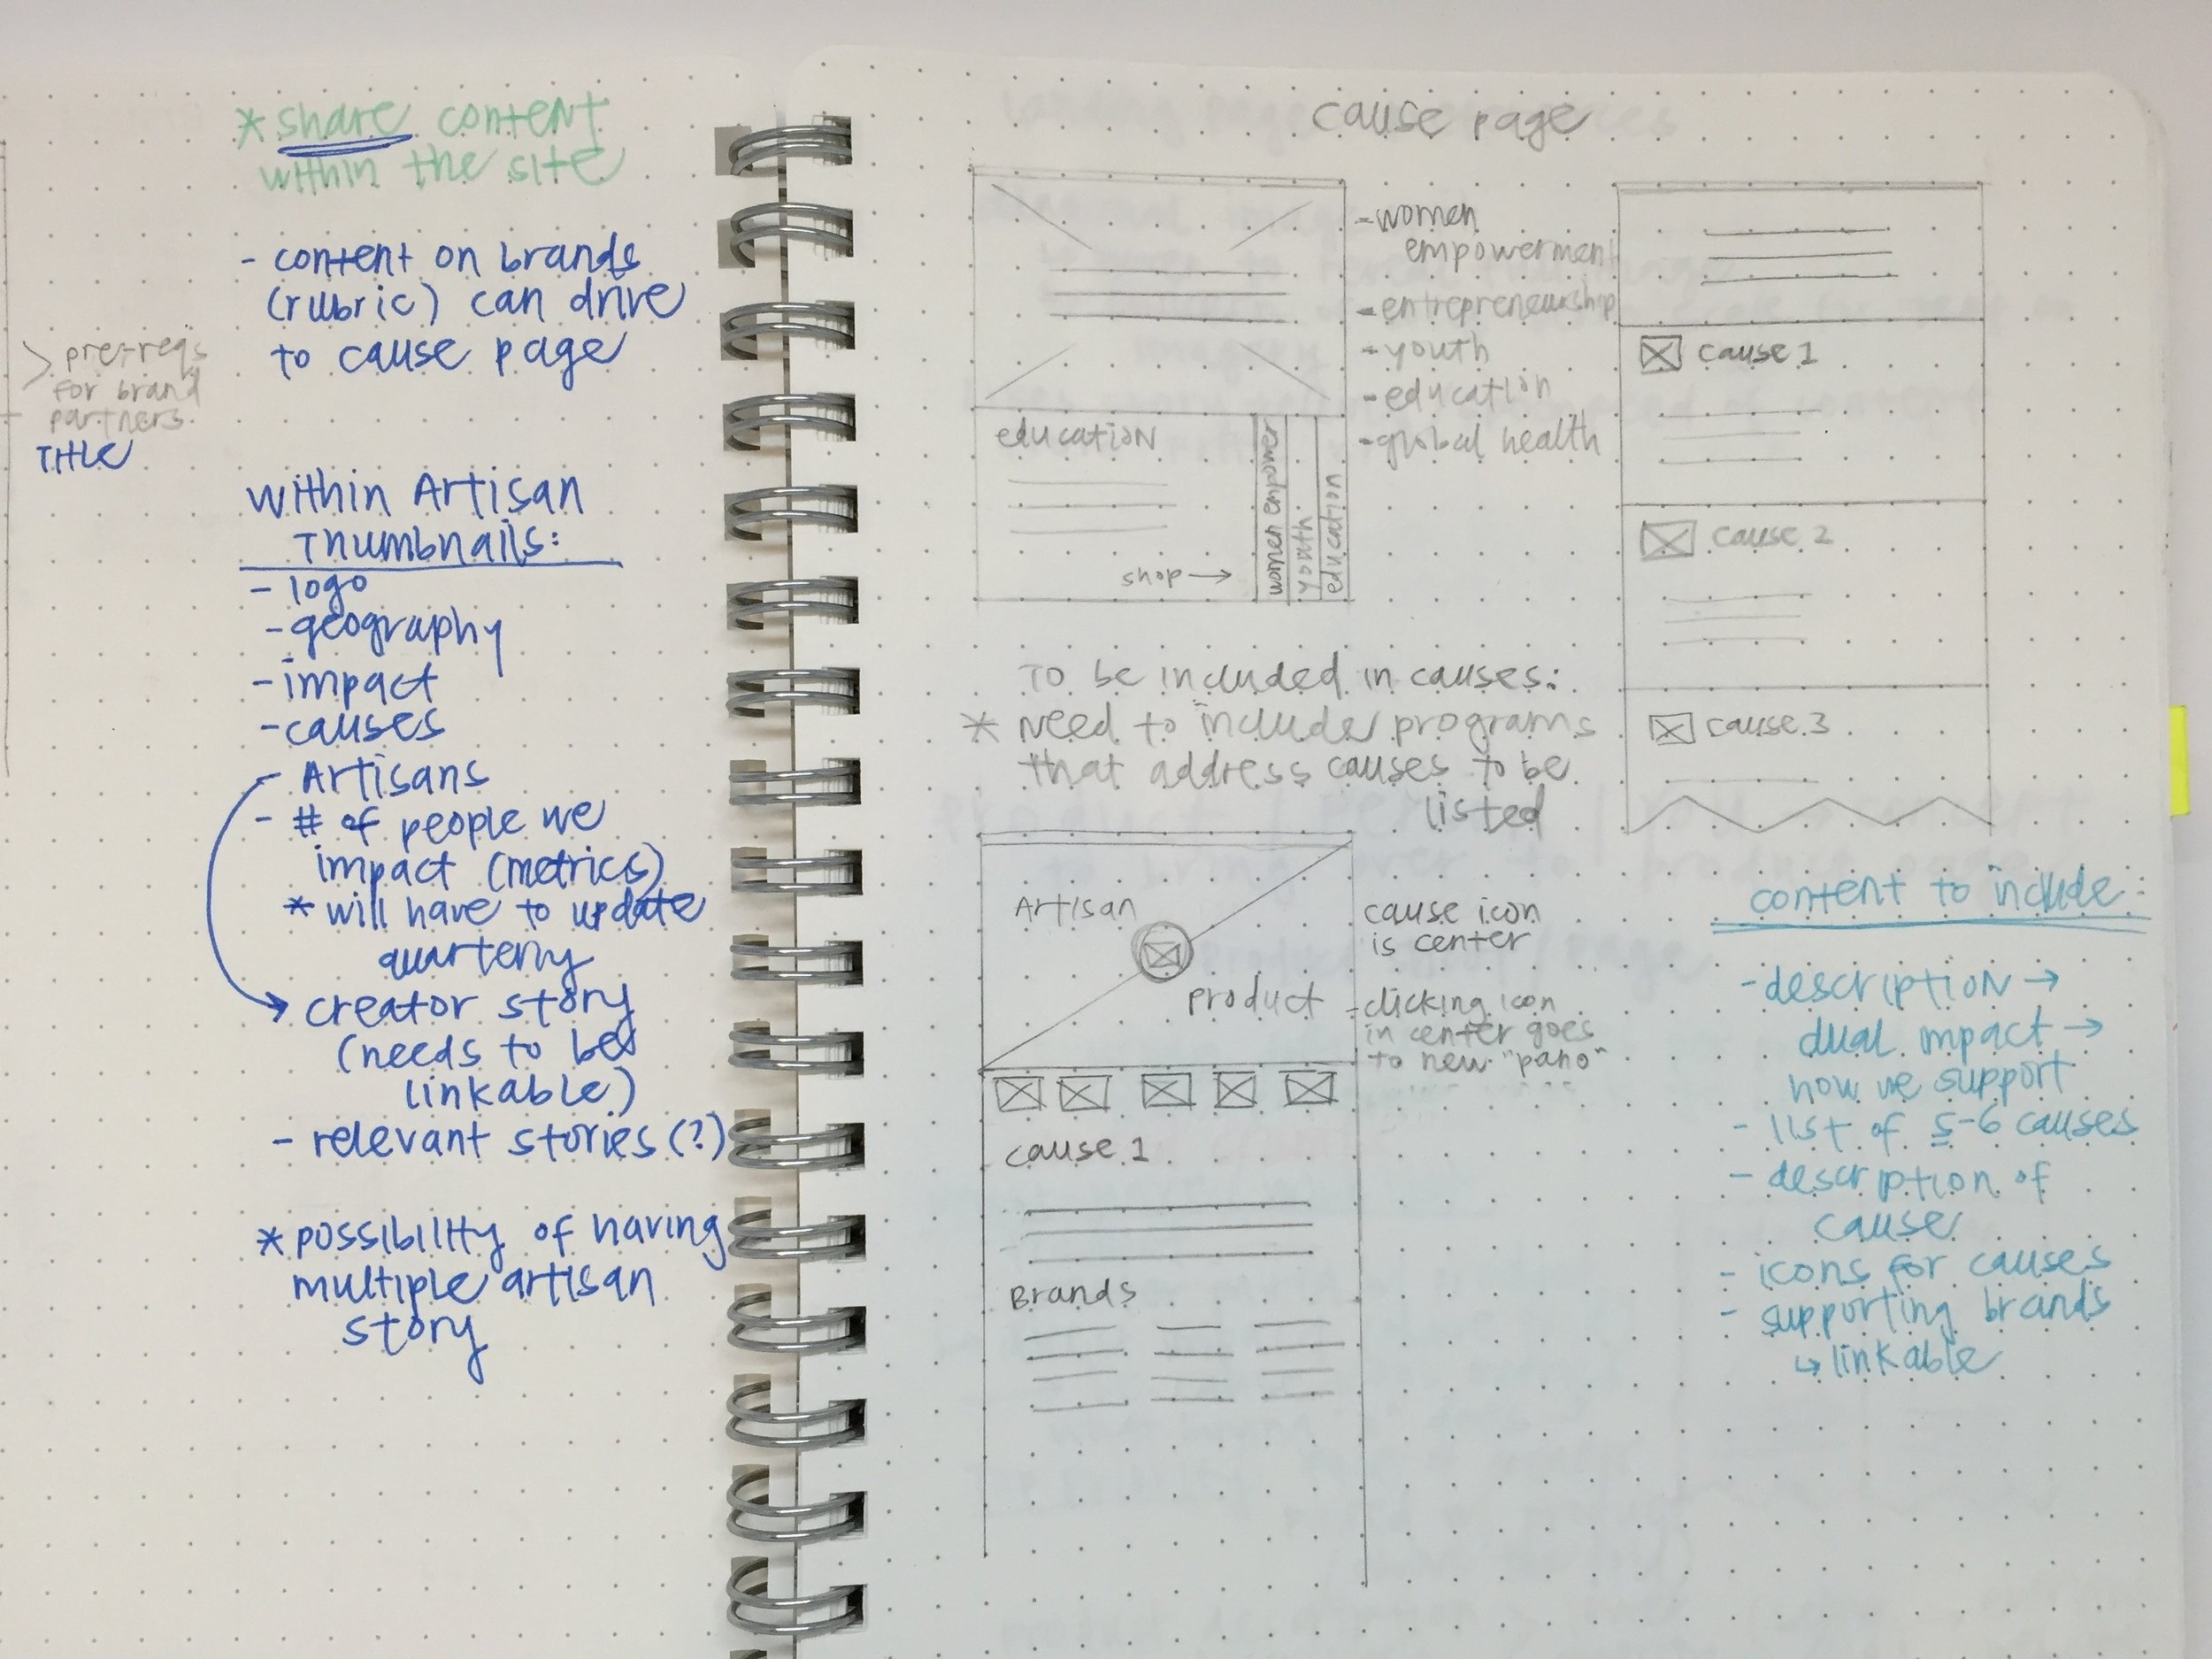 * share content
within the site
- content on brands
(rubric) can drive
to cause page
> pre-reqs
for brand
partners
TITLE
within Artisan
Thumbnails:
- logo
- geography
- impact
- causes
- Artisans
- # of people we
impact (metrics)
* will have to update
quarterly
→ creator story
(needs to be
linkable)
- relevant stories (?)
* possibility of having
multiple artisan
story
cause page
- women
empowerment
- entrepreneurship
- youth
- education
- global health
education
shop →
women empower
youth
education
cause 1
cause 2
cause 3
To be included in causes:
* need to include programs
that address causes to be
listed
Artisan
product
cause icon
is center
- clicking icon
in center goes
to new "pano"
cause 1
Brands
content to include:
- description →
dual impact →
how we support
- list of 5-6 causes
- description of
cause
- icons for causes
- supporting brands
↳ linkable